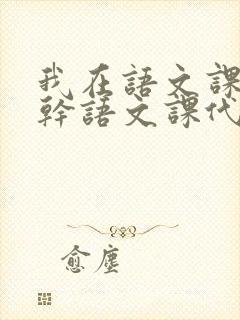 我在語文課
幹語文課代
愈塵